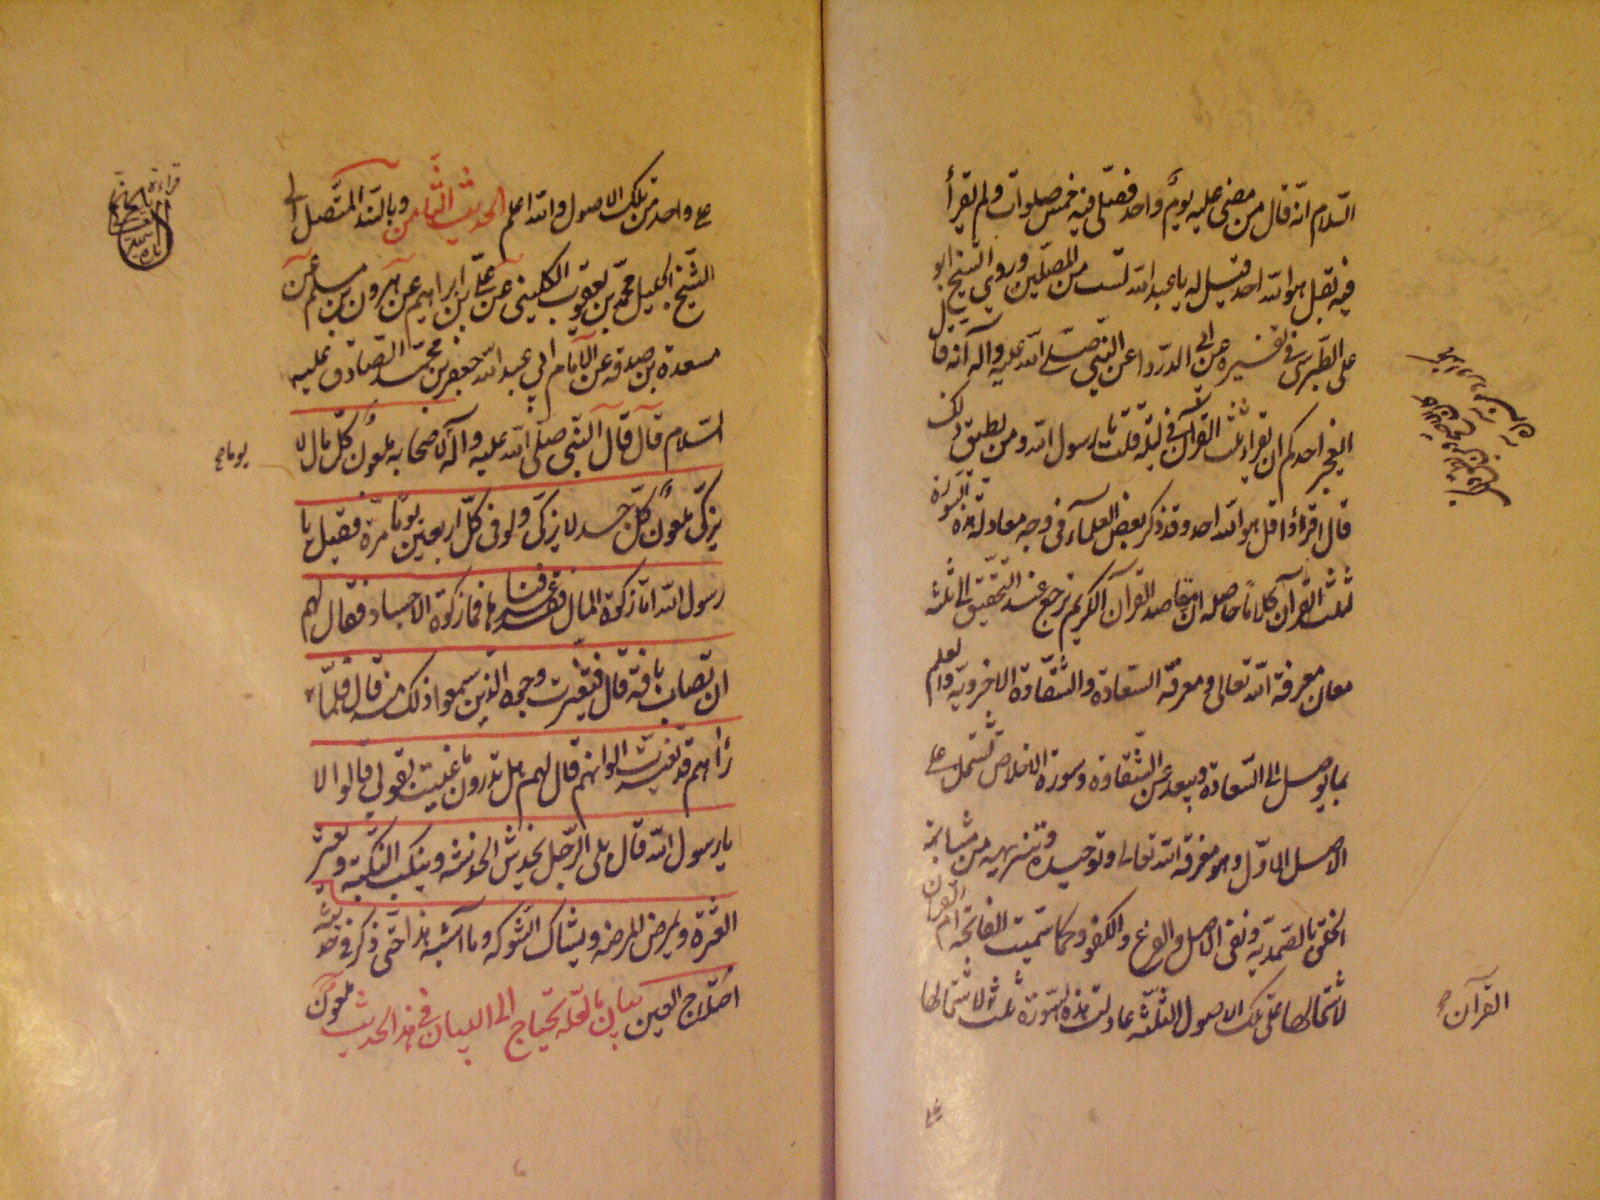 السلام انه قال من مضى عليه يوم واحد فصلى فيه خمس صلوات ولم يقرأ
فيه بقل هو الله احد قيل له يا عبد الله لست من المصلين وروى الشيخ ابو
على الطبرسى فى تفسيره عن ابى الدرداء عن النبى صلى الله عليه وآله انه قال
ايعجز احدكم ان يقراء ثلث القرآن فى ليلة قلت يا رسول الله ومن يطيق ذلك
قال اقرؤا قل هو الله احد وقد ذكر بعض العلمآء فى وجه معادلة هذه السورة
لثلث القرآن كلاما حاصله ان مقاصد القرآن الكريم ترجع عند التحقيق الى ثلثة
معان معرفة الله تعالى ومعرفة السعادة والشقاوة الاخروية والعلم
بما يوصل الى السعادة ويبعد عن الشقاوة وسورة الاخلاص تشتمل على
الاصل الاول وهو معرفة الله تعالى وتوحيده وتنزيهه من مشابهة
الخلق بالصمدية ونفى الاصل والفرع والكفو وكما سميت الفاتحة ام القرآن
لاشتمالها على تلك الاصول الثلثة عادلت هذه السورة ثلث لاشتمالها
القرآن
على
على واحد من تلك الاصول والله اعلم الحديث الثامن وبالسند المتصل الى
الشيخ الجليل محمد بن يعقوب الكلينى عن على بن ابراهيم عن هرون بن مسلم عن
مسعدة بن صدقة عن الامام ابي عبد الله جعفر بن محمد الصادق عليه
السلام قال قال النبى صلى الله عليه وآله لاصحابه ملعون كل مال لا
يزكى ملعون كل جسد لا يزكى ولو فى كل اربعين يوما مرة فقيل يا
رسول الله اما زكوة المال فقد عرفناها فما زكوة الاجساد فقال لهم
ان تصاب بافة قال فتغيرت وجوه الذين سمعوا ذلك منه قال فلما
رأهم قد تغيرت الوانهم قال لهم هل تدرون ما عنيت بقولي قالوا لا
يا رسول الله قال بلى الرجل يخدش الخدشة وينكب النكبة ويعثر
العثرة ويمرض المرضة ويشاك الشوكة وما اشبه هذا حتى ذكر فى حديثه
اختلاج العين بيان ما لعله يحتاج الى البيان فى هذا الحديث ملعون
يوما